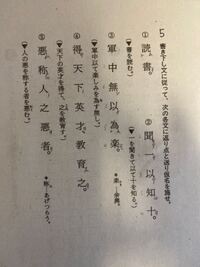 5 書き下し文に従って、次の各文に返り点と送り仮名を施せ。
① 読書。 ② 聞一以知十。
(▼書を読む。) (▼一を聞きて以て十を知る。)
③ 軍中無以為楽。 *楽―余興。
(▼軍中以て楽しみを為す無し。)
④ 得天下英才教育之。
(▼天下の英才を得て、之を教育す。)
⑤ 悪称人之悪者。 *称―あげつらう。
(▼人の悪を称する者を悪む。)